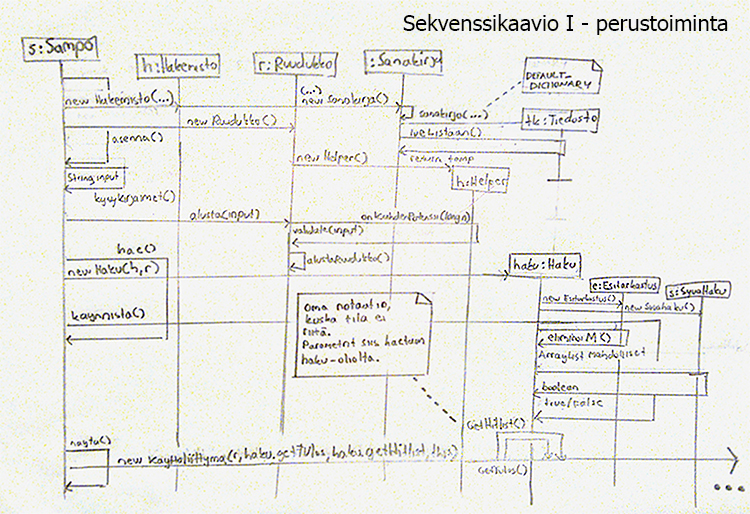 Sekvenssikaavio I - perustoiminta
s:Sampo
h:Hakemisto
r:Ruudukko
:Sanakirja
DEFAULT_
DICTIONARY
new Hakemisto(...)
(...)
new Sanakirja()
sanakirja(...)
tk:Tiedosto
new Ruudukko()
asenna()
lueListaan()
new Helper()
return temp
String input
h:Helper
kysyKirjaimet()
alusta(input)
validate(input)
alustaRuudukko()
hae()
new Haku(h,r)
haku:Haku
e:Esitarkastus
s:SyvaHaku
new Esitarkastus()
new Syvahaku()
Oma notaatio,
koska tila ei
riitä.
Parametrit siis haetaan
haku-oliolta.
kaynnista()
eliminoiM()
ArrayList mahdolliset
boolean
true/false
GetHitlist()
nayta()
new Kayttoliittyma(r,haku.getTulos,haku.getHitlist,this)
GetTulos()
...